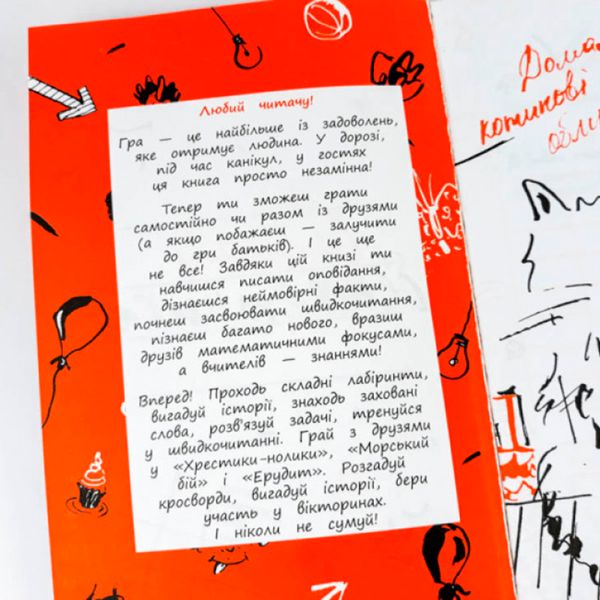 Любий читачу!
Гра — це найбільше із задоволень,
яке отримує людина. У дорозі,
під час канікул, у гостях
ця книга просто незамінна!
Тепер ти зможеш грати
самостійно чи разом із друзями
(а якщо побажаєш — залучити
до гри батьків). І це ще
не все! Завдяки цій книзі ти
навчишся писати оповідання,
дізнаєшся неймовірні факти,
почнеш засвоювати швидкочитання,
пізнаєш багато нового, вразиш
друзів математичними фокусами,
а вчителів — знаннями!
Вперед! Проходь складні лабіринти,
вигадуй історії, знаходь заховані
слова, розв'язуй задачі, тренуйся
у швидкочитанні. Грай з друзями
у «Хрестики-нолики», «Морський
бій» і «Ерудит». Розгадуй
кросворди, вигадуй історії, бери
участь у вікторинах.
І ніколи не сумуй!